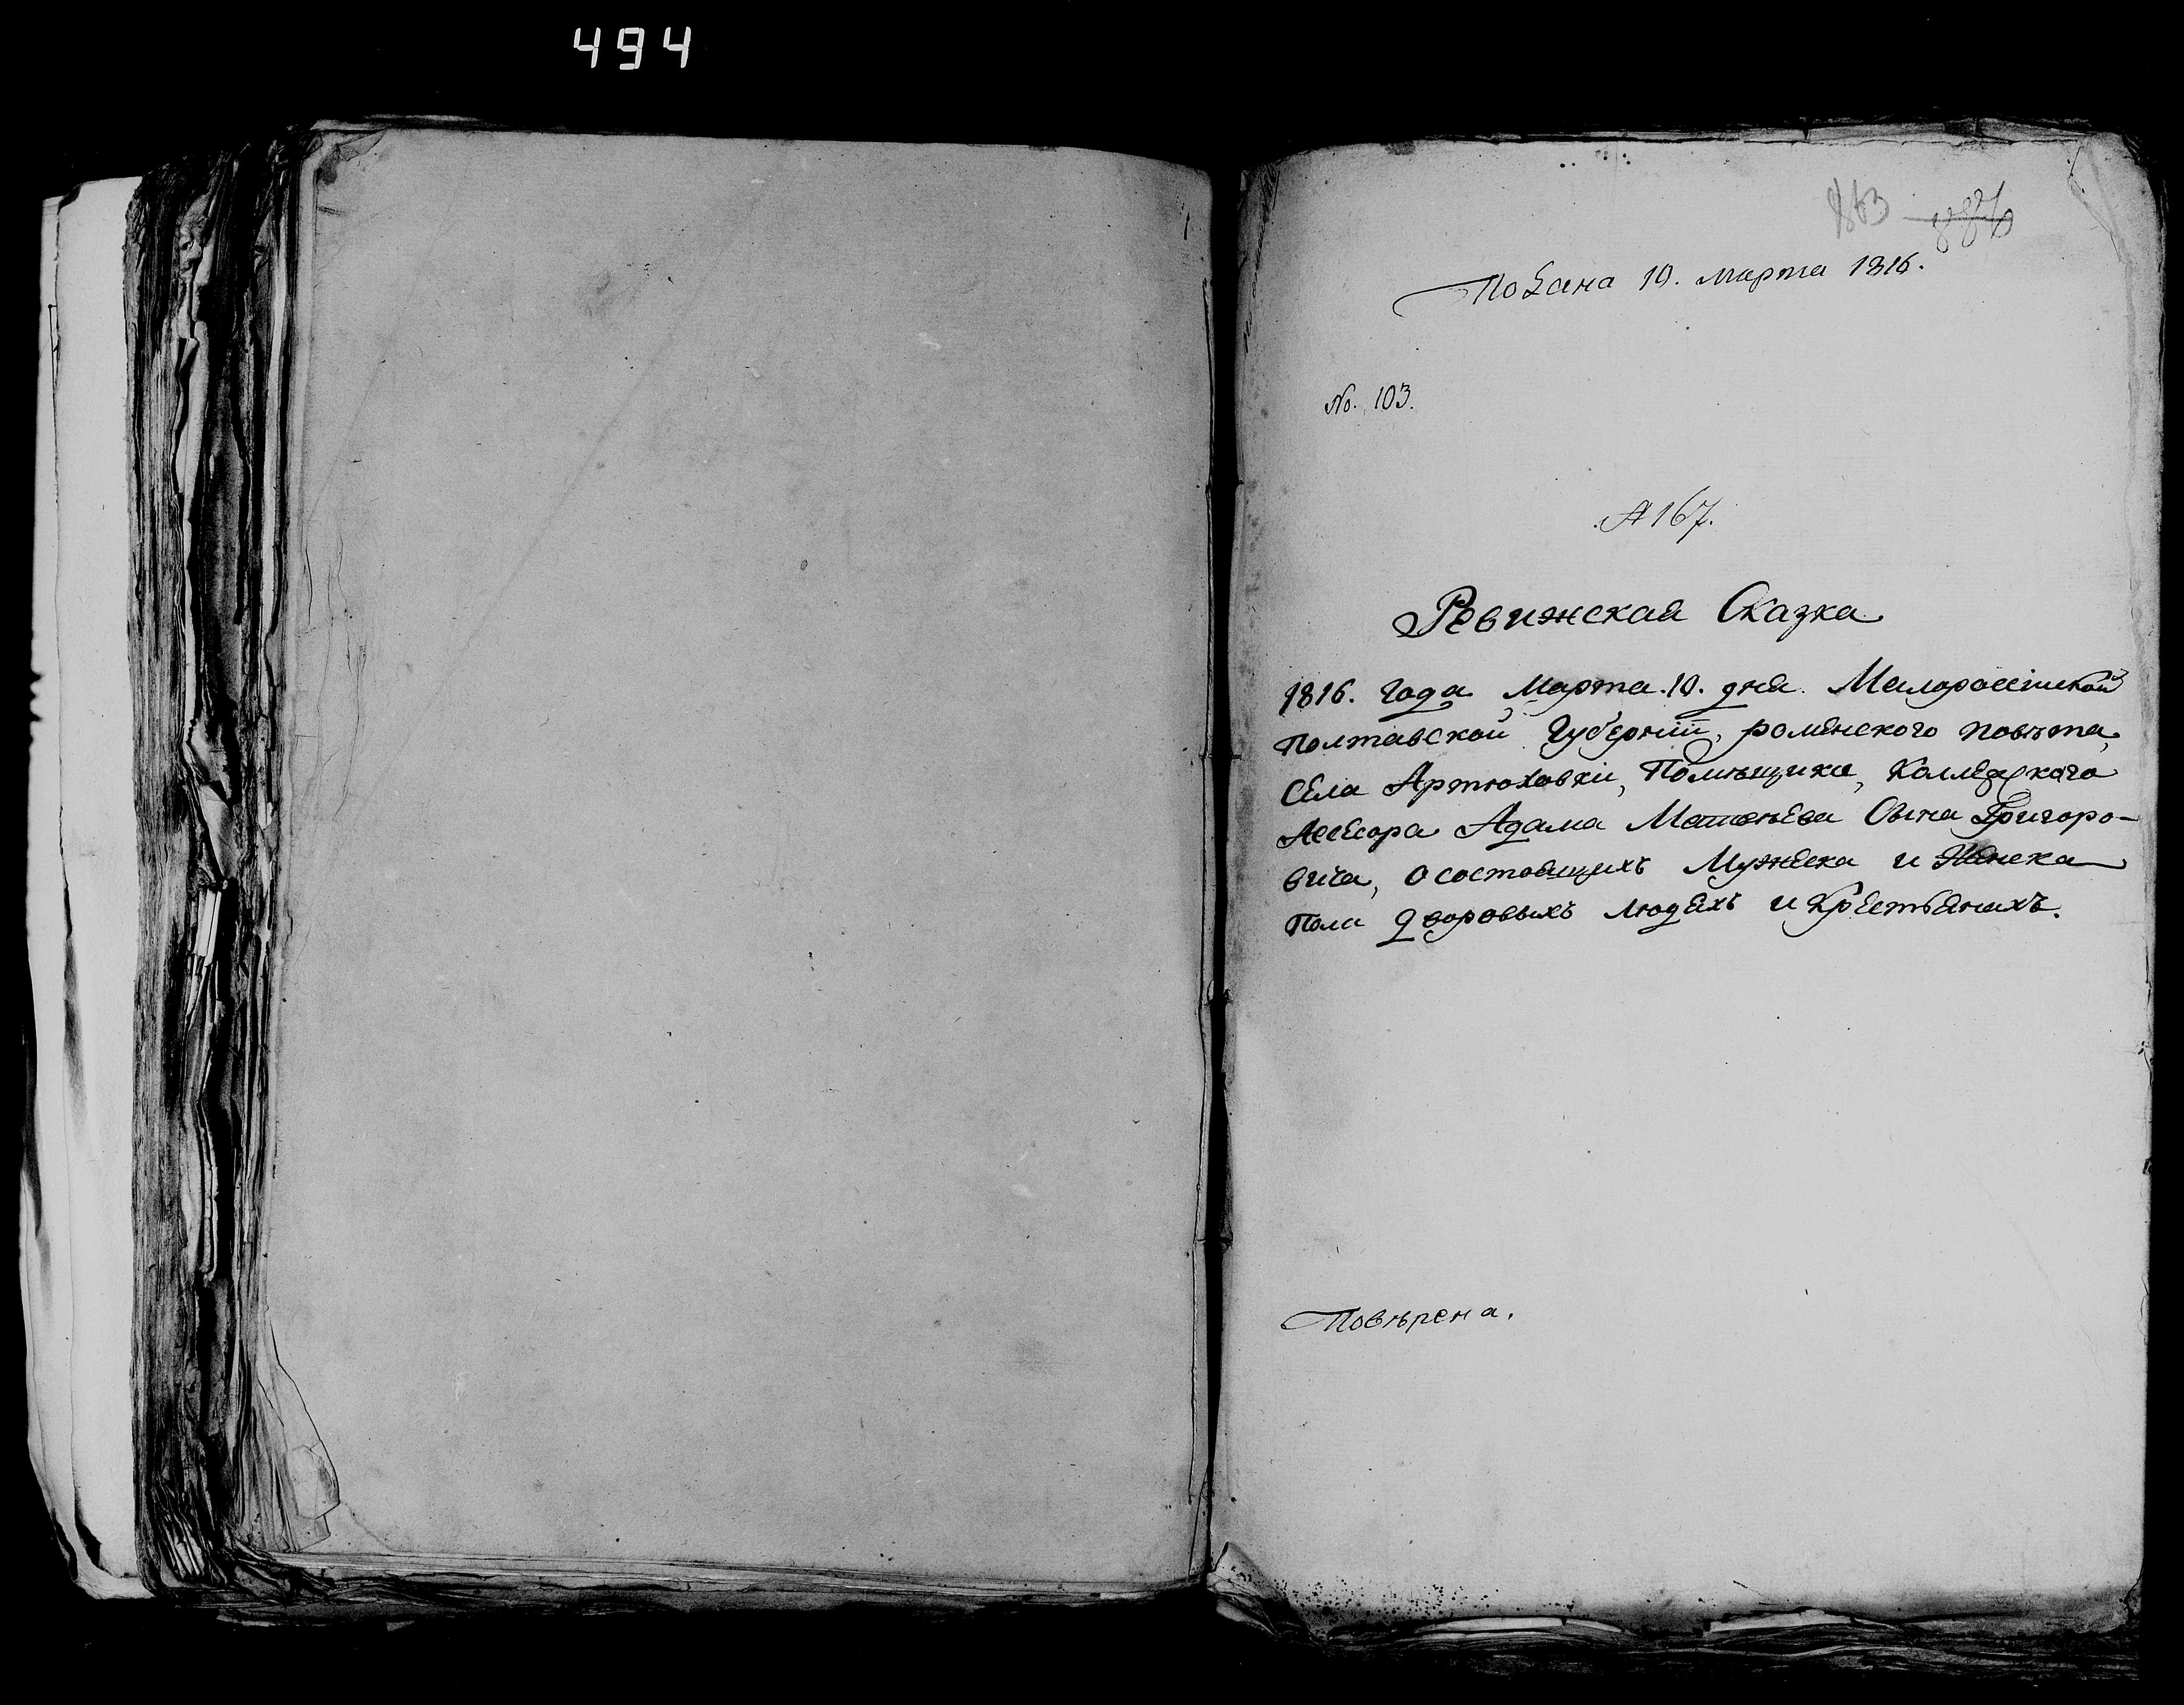 494
863
Подана 10. марта 1816.
No. 103.
№ 167.
Ревижская Сказка
1816. года Марта. 10. дня. Малороссійской
Полтавской Губерніи, роменского повѣта,
Села Артюховки, Помѣщика, Коллежского
Ассесора Адама Матвѣева Сына Григоро-
вича, о состоящихъ Мужеска и Женска
Пола дворовыхъ людехъ и Крестьянахъ.
Повѣрена.